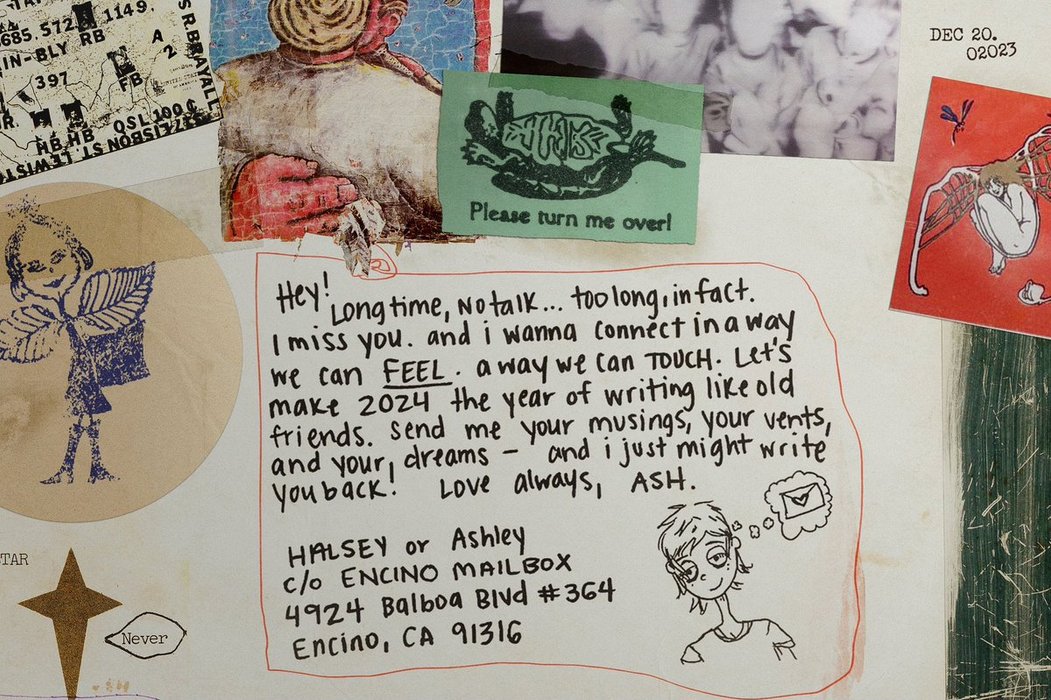 685.572 1149.
IN-BLY RB A
2
397 FB
HB HB QSL 100
LISBON ST LEWIST
DEC 20.
02023
Please turn me over!
Hey! Long time, No talk... too long, in fact.
I miss you. and i wanna connect in a way
we can FEEL. a way we can TOUCH. Let's
make 2024 the year of writing like old
friends. Send me your musings, your vents,
and your dreams - and i just might write
you back! Love always, ASH.
HALSEY or Ashley
c/o ENCINO MAILBOX
4924 Balboa Blvd #364
Encino, CA 91316
TAR
Never